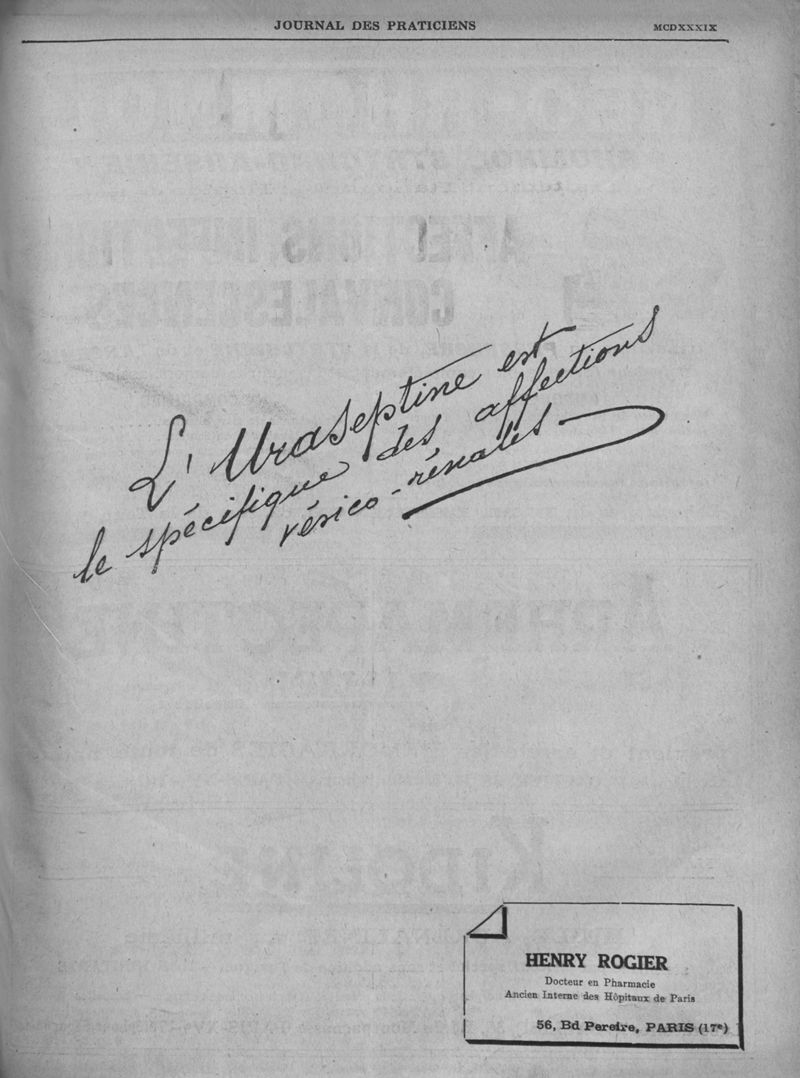 JOURNAL DES PRATICIENS
MCDXXXIX
L'Uraseptine est
le spécifique des affections
vésico-rénales
HENRY ROGIER
Docteur en Pharmacie
Ancien Interne des Hôpitaux de Paris
56, Bd Pereire, PARIS (17e)
KIDOLINE